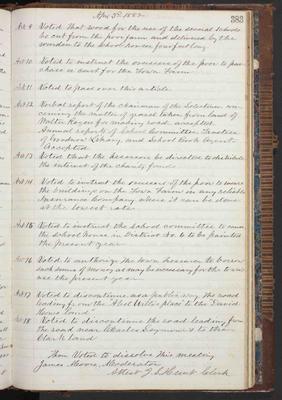 Apr 3d 1882
383
Art 9 Voted That wood for the use of the several schools
be cut from the poor farm and delivered by the
warden to the School houses four foot long
Art 10 Voted to instruct the overseers of the poor to pur-
chase a cart for the Town Farm
Art 11 Voted to pass over this article
Art 12 Verbal report of the chairman of the Selectmen con-
cerning the matter of gravel taken from land of
Walter for making road accepted
Annual reports of School Committee, Trustees
of Library, and School Book Agent
Accepted
Art 13 Voted that the assessors be directed to distribute
the interest of the charity funds
Art 14 Voted to instruct the overseers of the poor to insure
the buildings on the Town Farm in any reliable
Insurance Company where it can be done
at the lowest rates
Art 15 Voted to instruct the school committee to cause
the school house in District No. 6 to be painted
the present year
Art 16 Voted to authorize the Town Treasurer to borrow
such sums of money as may be necessary for the town's
use the present year
Art 17 Voted to discontinue as a public way the road
leading from the place to the David
land
Art 18 Voted to discontinue the road leading from
the road near Charles to the
Clark land
Then Voted to dissolve this meeting
James Moore, Moderator
Attest J. S. Hunt Clerk